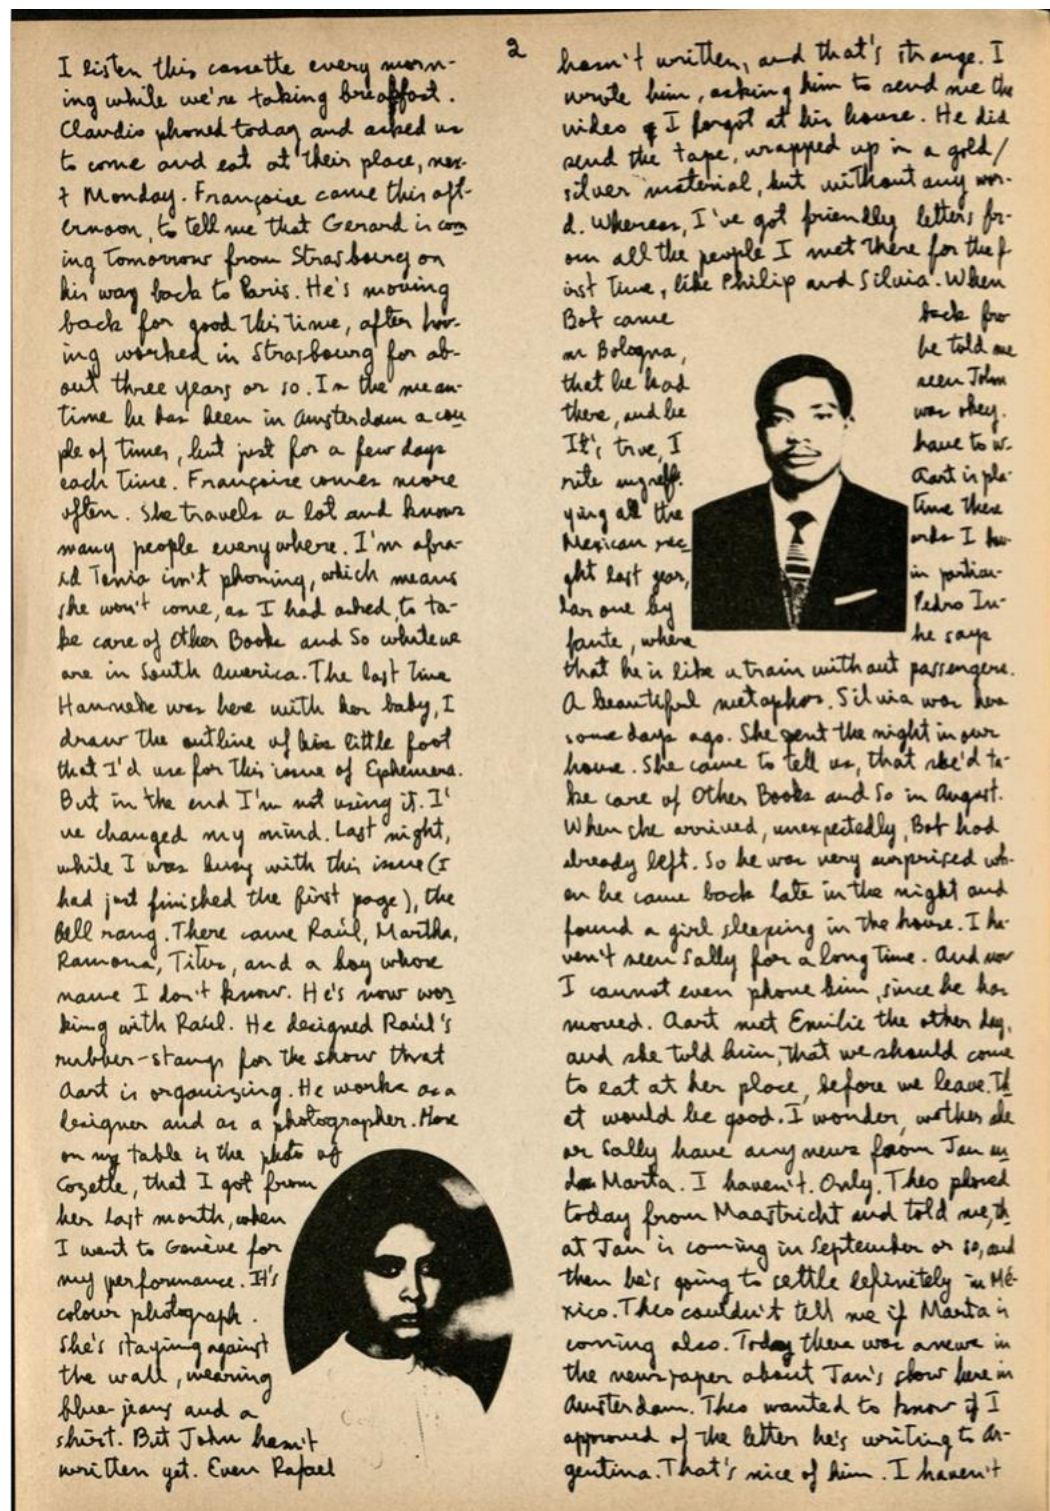 2
I listen this cassette every morn-
ing while we're taking breakfast.
Claudio phoned today and asked us
to come and eat at their place, nex-
t Monday. Françoise came this aft-
ernoon, to tell me that Gerard is com
ing tomorrow from Strasbourg on
his way back to Paris. He's moving
back for good this time, after hav-
ing worked in Strasbourg for ab-
out three years or so. In the mean-
time he has been in Amsterdam a cou
ple of times, but just for a few days
each time. Françoise comes more
often. She travels a lot and knows
many people everywhere. I'm afra-
id Tania isn't phoning, which means
she won't come, as I had asked, to ta-
ke care of Other Books and So while we
are in South America. The last time
Hanneke was here with her baby, I
draw the outline of his little foot
that I'd use for this issue of Ephemera.
But in the end I'm not using it. I'
ve changed my mind. Last night,
while I was busy with this issue (I
had just finished the first page), the
bell rang. There came Raúl, Martha,
Ramona, Titus, and a boy whose
name I don't know. He's now wor
king with Raúl. He designed Raúl's
rubber-stamp for the show that
Aart is organizing. He works as a
designer and as a photographer. Here
on my table is the photo of
Cozette, that I got from
her last month, when
I went to Genève for
my performance. It's
colour photograph.
She's staying against
the wall, wearing
blue-jeans and a
shirt. But John hasn't
written yet. Even Rafael
hasn't written, and that's strange. I
wrote him, asking him to send me the
video I forgot at his house. He did
send the tape, wrapped up in a gold/
silver material, but without any wor-
d. Whereas, I've got friendly letters fr-
om all the people I met there for the f
irst time, like Philip and Silvia. When
Bob came back fro
m Bologna, he told me
that he had seen John
there, and he was okey.
It's true, I have to w-
rite myself. Aart is pla-
ying all the time these
Mexican rec ords I bou-
ght last year, in particu-
lar one by Pedro In-
fante, where he says
that he is like a train without passengers.
A beautiful metaphor. Silvia was here
some days ago. She spent the night in our
house. She came to tell us, that she'd ta-
ke care of Other Books and So in August.
When she arrived, unexpectedly, Bob had
already left. So he was very surprised wh-
en he came back late in the night and
found a girl sleeping in the house. I ha-
ven't seen Sally for a long time. And now
I cannot even phone him, since he has
moved. Aart met Emilie the other day,
and she told him, that we should come
to eat at her place, before we leave. Th
at would be good. I wonder, wether she
or Sally have any news from Jan an
d Marta. I haven't. Only, Theo phoned
today from Maastricht and told me, th
at Jan is coming in September or so, and
then he's going to settle definitely in Mé-
xico. Theo couldn't tell me if Marta is
coming also. Today there was a news in
the newspaper about Jan's show here in
Amsterdam. Theo wanted to know if I
approved of the letter he's writing to Ar-
gentina. That's nice of him. I haven't